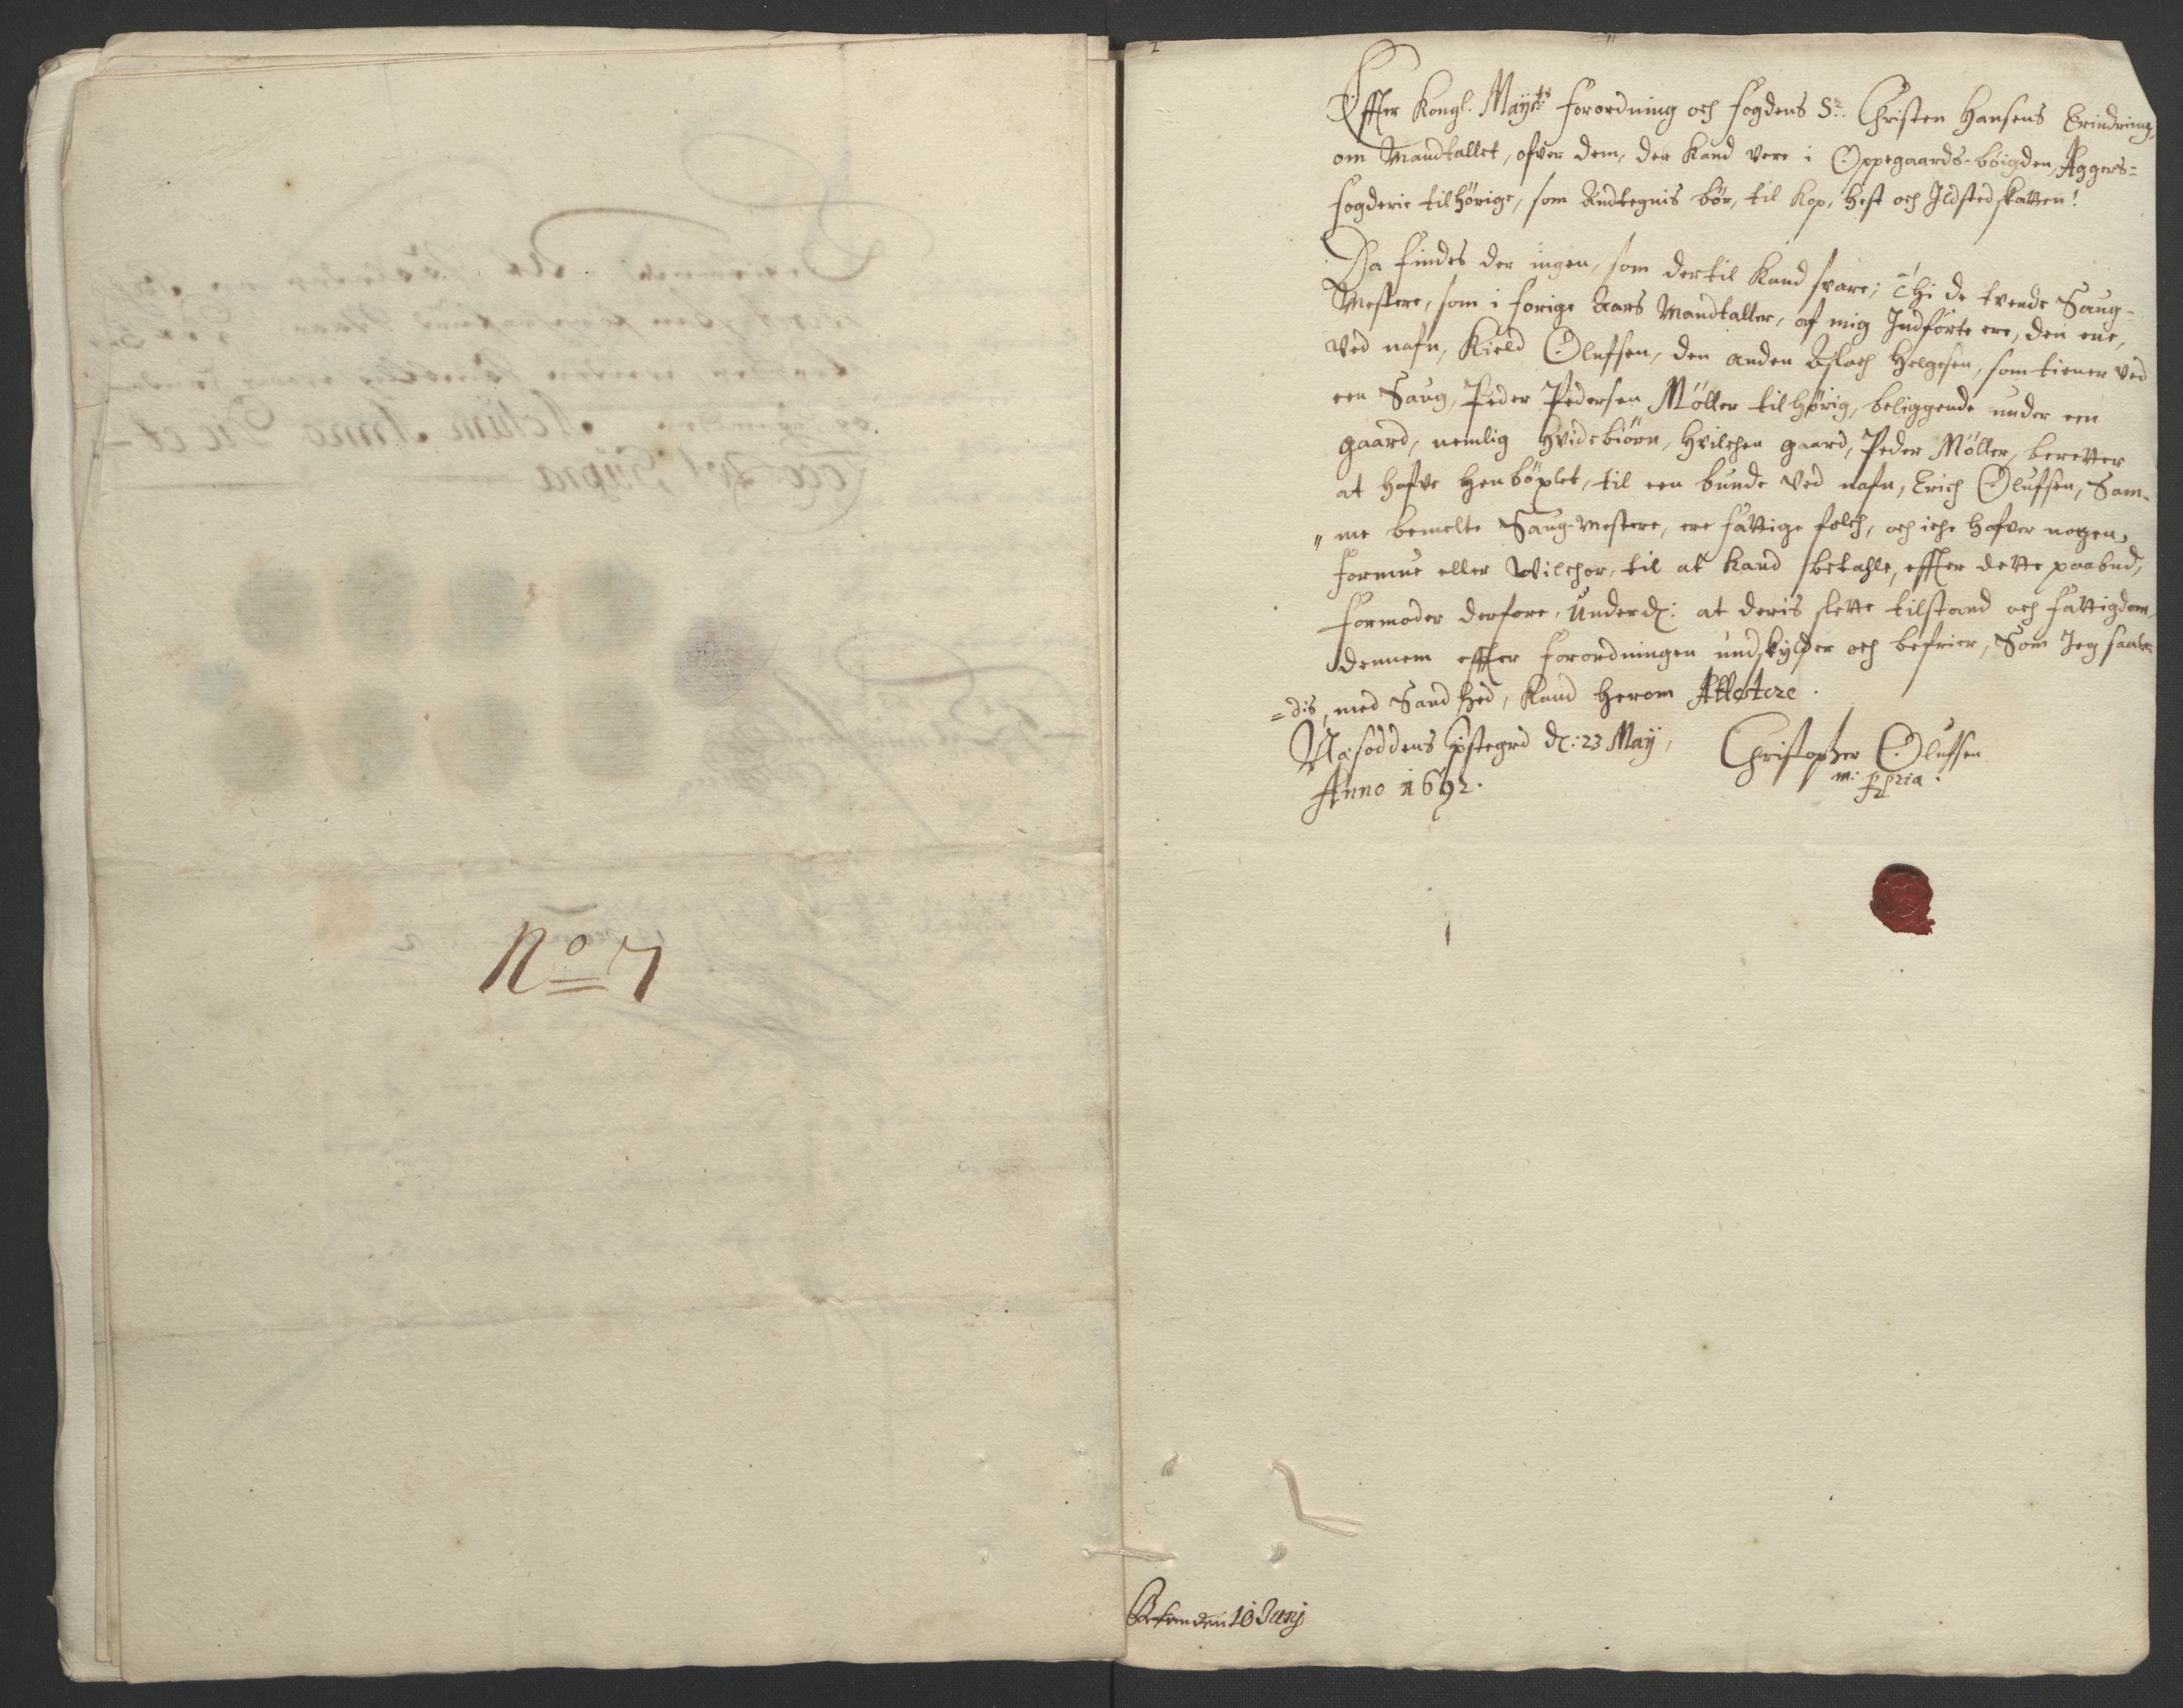 No 7
Effter Kongl. Mayts forordning och fogdens Sr. Christen Hansens Erindring,
om Mandtallet, ofver dem, der kand vere i Oppegaards-böigden, Aggers=
fogderie tilhörige, som Andtegnis bör, til Kop, Hest och Ildstedskatten!
Da findes der ingen, som dertil kand svare; Thi de tvende Saug-
Mestere, som i forige Aars Mandtaller, af mig Indförte ere, den ene,
ved nafn, Kield Olufsen, den anden Aslach Helgesen, som tiener ved
een Saug, Peder Pedersen Möller tilhörig, beliggende under een
gaard, nemlig Hvidebiörn, hvilchen gaard, Peder Möller, beretter
at hafve henböxlet, til een bunde ved nafn, Erich Olufsen, Sam-
" me bemelte Saug-Mestere, ere fattige folch, och iche hafver nogen,
formue eller Vilchor, til at kand betahle, effter dette paabud,
formoder derfore, Underd: at deris slette tilstand och fattigdom,
dennem effter forordningen undskylder och befrier, Som Jeg saale
= dis, med Sandhed, kand herom Attestere.
Næsoddens Pstegrd d: 23 May,
Christopher Olufsen
m: ppria.
Anno 1692.
den 16 Junij